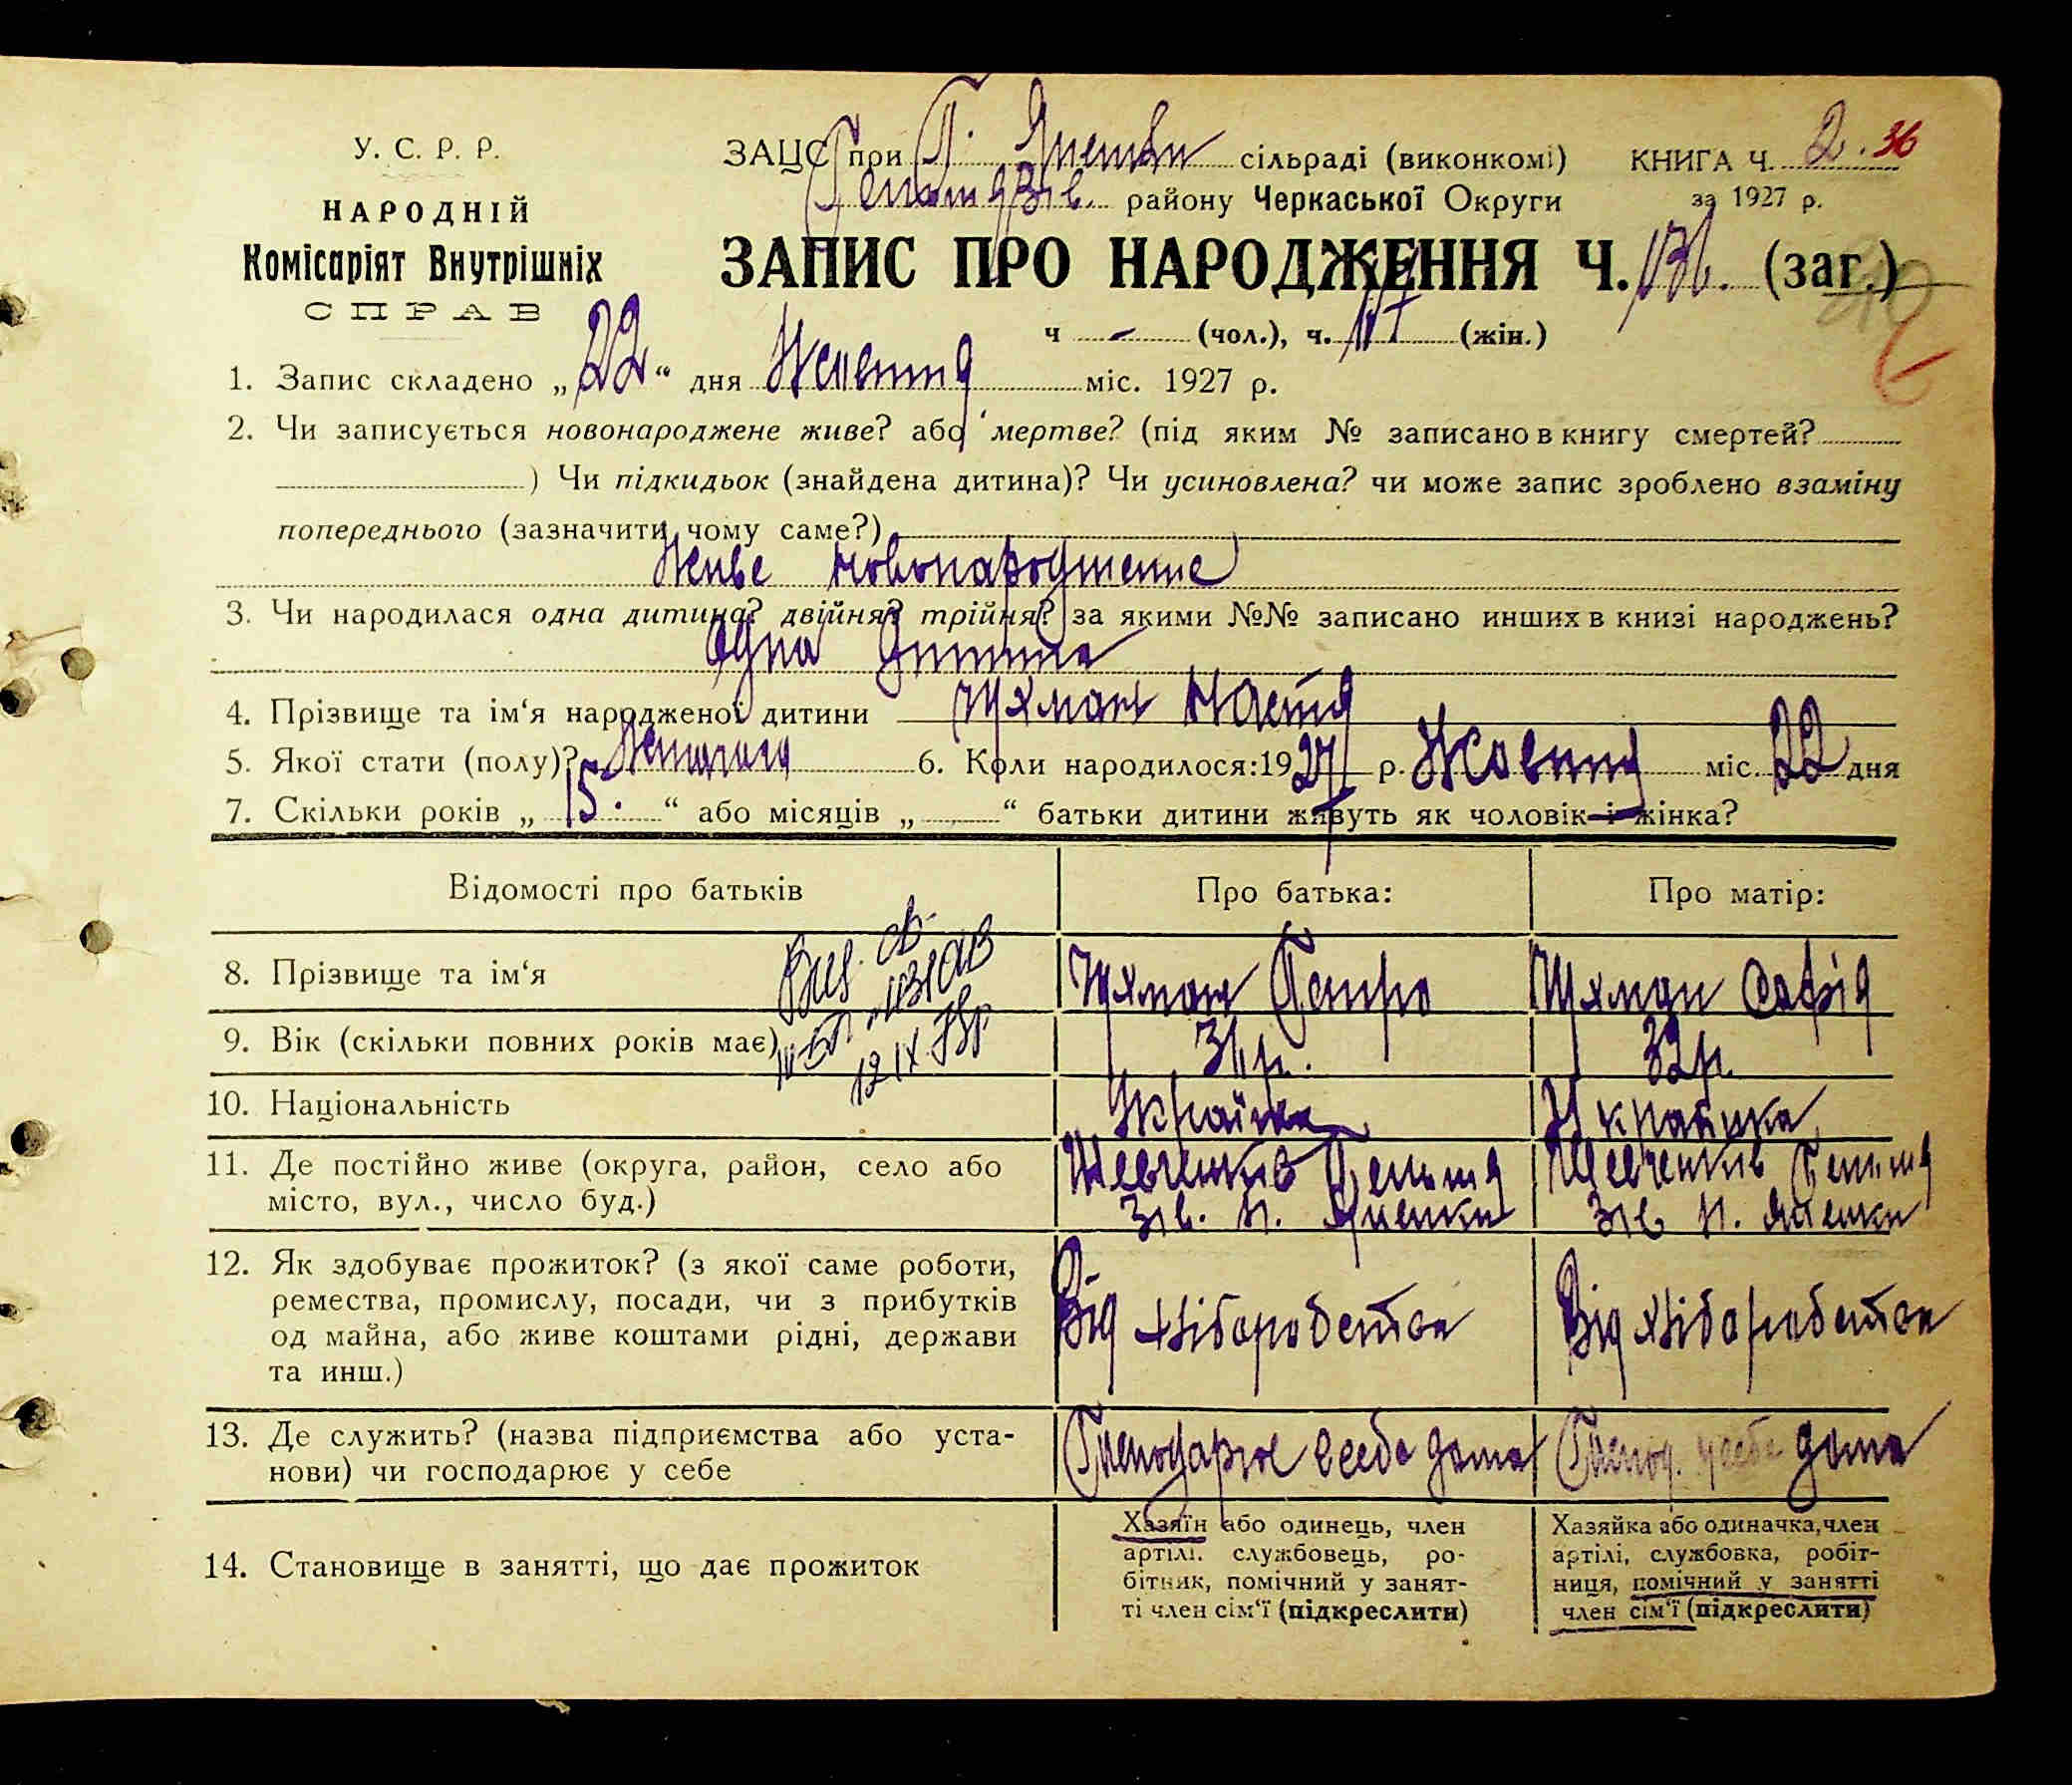 У. С. Р. Р.
НАРОДНІЙ
Комісаріят Внутрішніх
СПРАВ
ЗАЦС при П. Яненки сільраді (виконкомі) КНИГА Ч. 2. 36
району Черкаської Округи за 1927 р.
ЗАПИС ПРО НАРОДЖЕННЯ Ч. 136. (заг.)
ч - (чол.), ч. (жін.)
1. Запис складено „22“ дня Жовтня міс. 1927 р.
2. Чи записується новонароджене живе? або мертве? (під яким № записано в книгу смертей?
) Чи підкидьок (знайдена дитина)? Чи усиновлена? чи може запис зроблено взаміну
попереднього (зазначити чому саме?)
Живе новонароджение
3. Чи народилася одна дитина? двійня? трійня? за якими №№ записано инших в книзі народжень?
Одна дитина
4. Прізвище та ім‘я народженої дитини Цуман Настя
5. Якої стати (полу)? 6. Коли народилося: 1927 р. Жовтня міс. 22 дня
7. Скільки років „15.“ або місяців „ “ батьки дитини живуть як чоловік і жінка?
Відомості про батьків Про батька: Про матір:
8. Прізвище та ім‘я Петро Софія
9. Вік (скільки повних років має) 32 р.
10. Національність Українка
11. Де постійно живе (округа, район, село або
місто, вул., число буд.)
12. Як здобуває прожиток? (з якої саме роботи, Від хліборобства Від хліборобства
ремества, промислу, посади, чи з прибутків
од майна, або живе коштами рідні, держави
та инш.)
13. Де служить? (назва підприємства або уста- Господарює у себе дома Господ. у себе дома
нови) чи господарює у себе
14. Становище в занятті, що дає прожиток
Хазяїн або одинець, член
артілі. службовець, ро-
бітник, помічний у занят-
ті член сім‘ї (підкреслити)
Хазяйка або одиначка, член
артілі, службовка, робіт-
ниця, помічний у занятті
член сім‘ї (підкреслити)